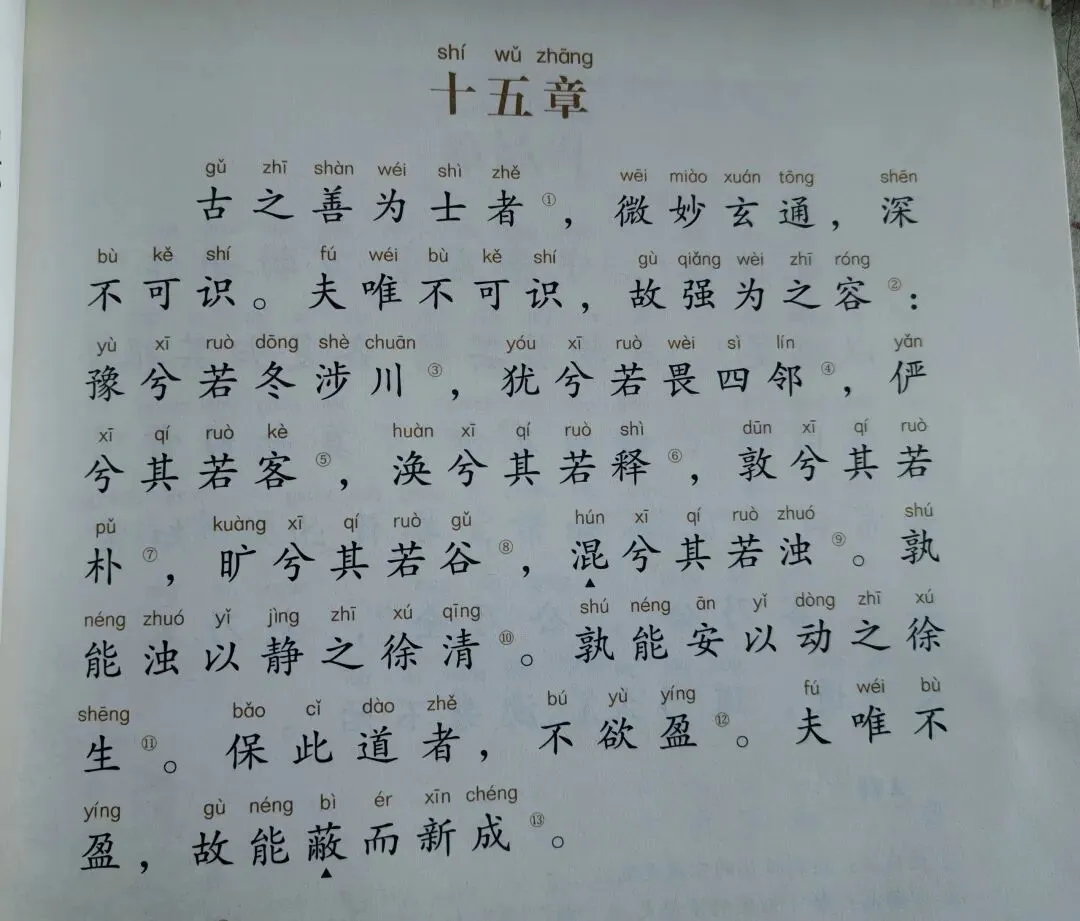 shí wǔ zhāng
十五章
gǔ zhī shàn wéi shì zhě wēi miào xuán tōng shēn
古之善为士者①，微妙玄通，深
bù kě shí fú wéi bù kě shí gù qiǎng wèi zhī róng
不可识。夫唯不可识，故强为之容②：
yù xī ruò dōng shè chuān yóu xī ruò wèi sì lín yǎn
豫兮若冬涉川③，犹兮若畏四邻④，俨
xī qí ruò kè huàn xī qí ruò shì dūn xī qí ruò
兮其若客⑤，涣兮其若释⑥，敦兮其若
pǔ kuàng xī qí ruò gǔ hún xī qí ruò zhuó shú
朴⑦，旷兮其若谷⑧，混兮其若浊⑨。孰
néng zhuó yǐ jìng zhī xú qīng shú néng ān yǐ dòng zhī xú
能浊以静之徐清⑩。孰能安以动之徐
shēng bǎo cǐ dào zhě bú yù yíng fú wéi bù
生⑪。保此道者，不欲盈⑫。夫唯不
yíng gù néng bì ér xīn chéng
盈，故能蔽而新成⑬。